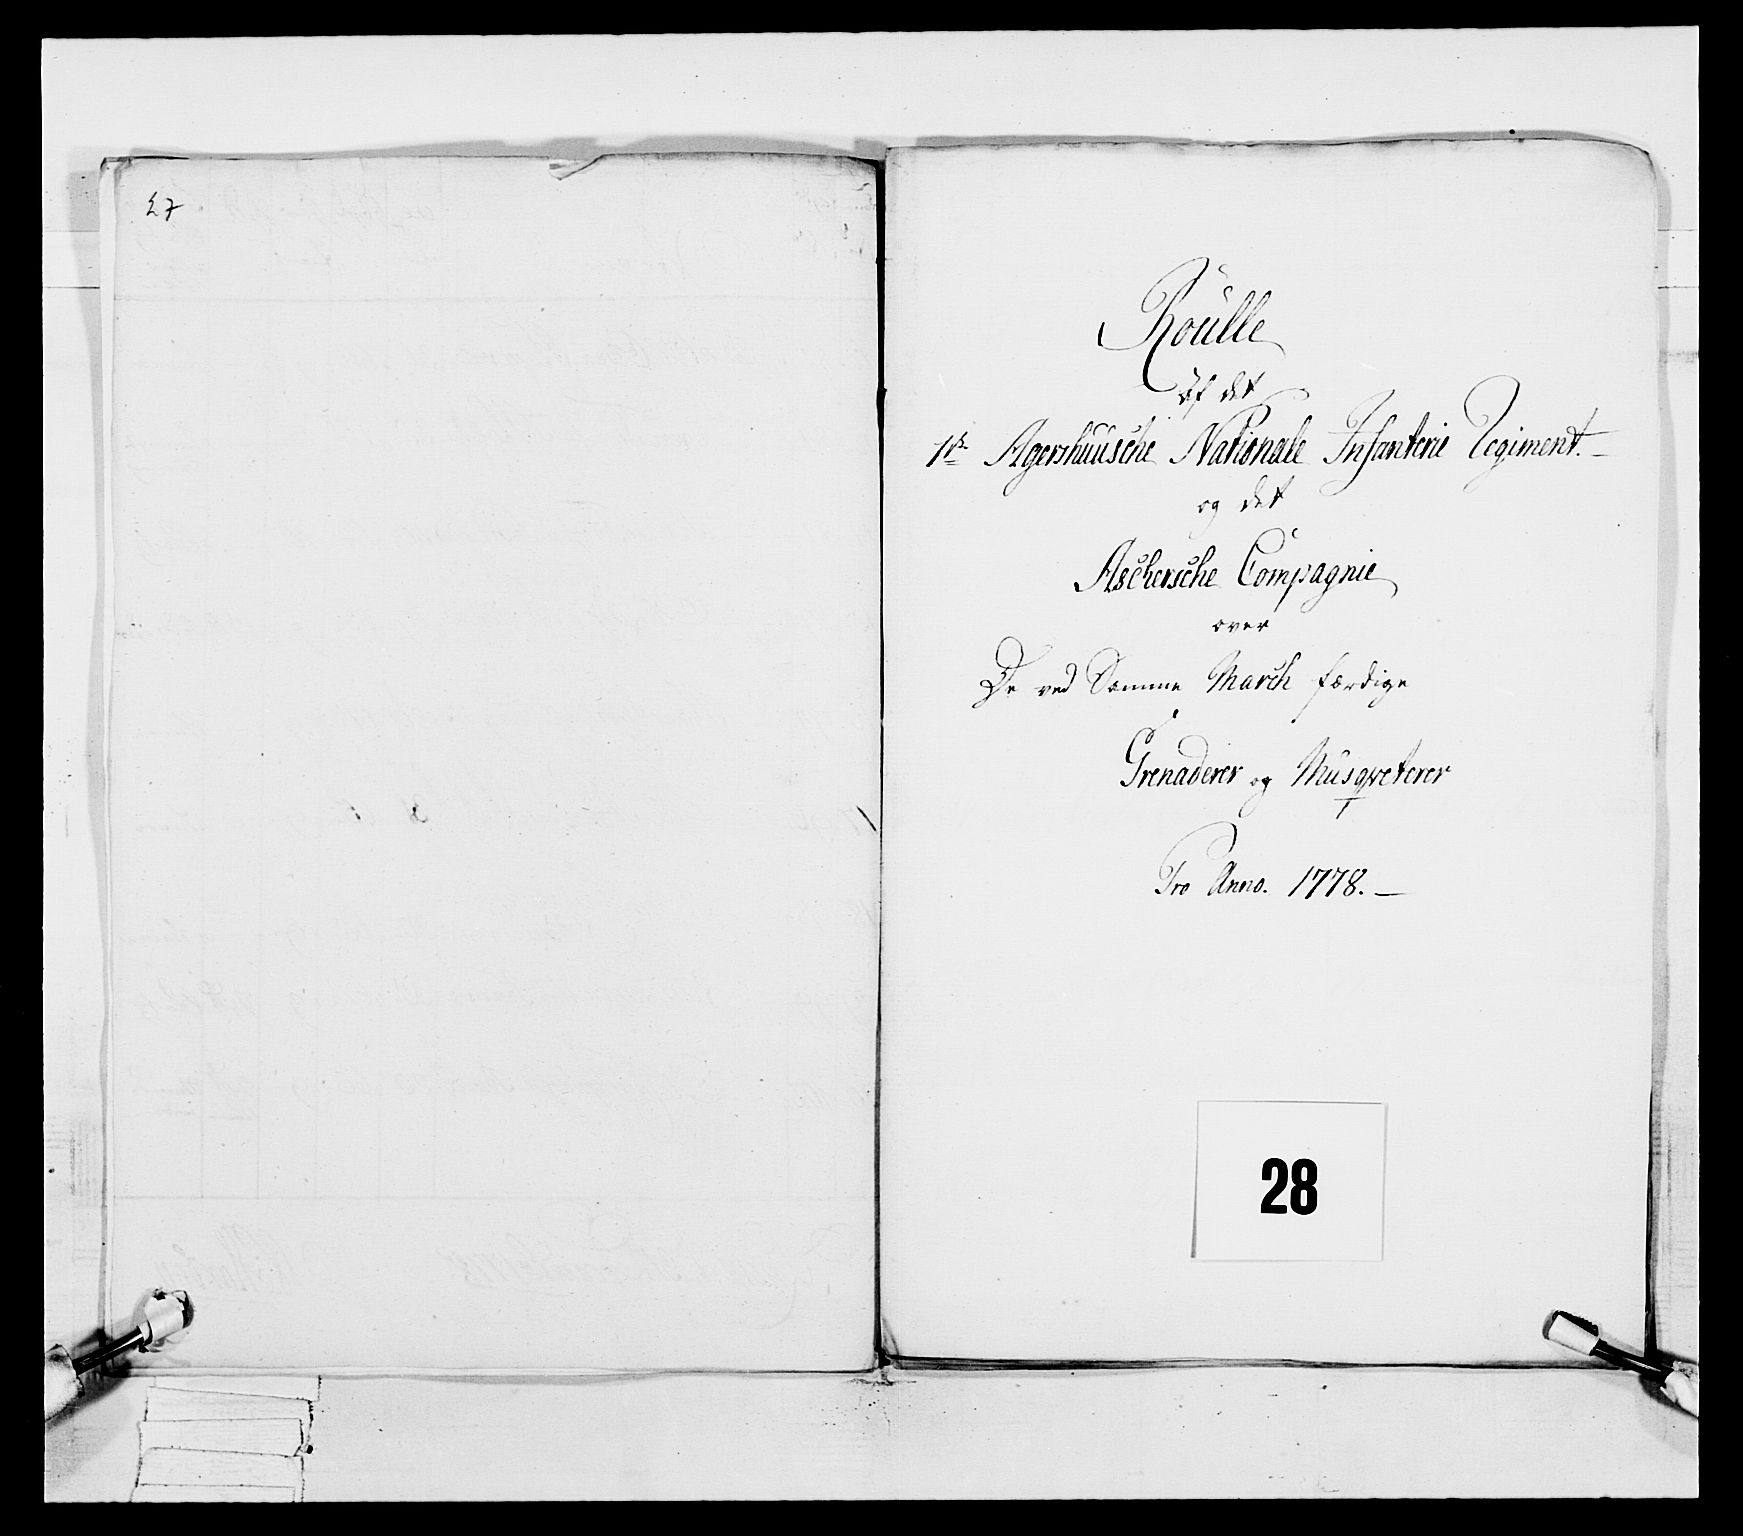 27
Roülle
af det
1ste Agershuüsche Nationale Infanterie Regiment.
og det
Aschersche Compagnie
over
De ved Samme March færdige
Grenaderer og Musqveterer
Pro Anno. 1778.
28